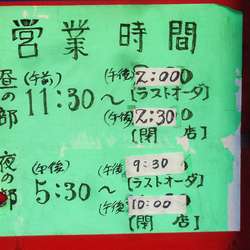 営業時間
昼の部 (午前) 11:30〜 (午後) 2:00
[ラストオーダ]
(午後) 2:30
[閉店]
夜の部 (午後) 5:30〜 (午後) 9:30
[ラストオーダ]
(午後) 10:00
[閉店]